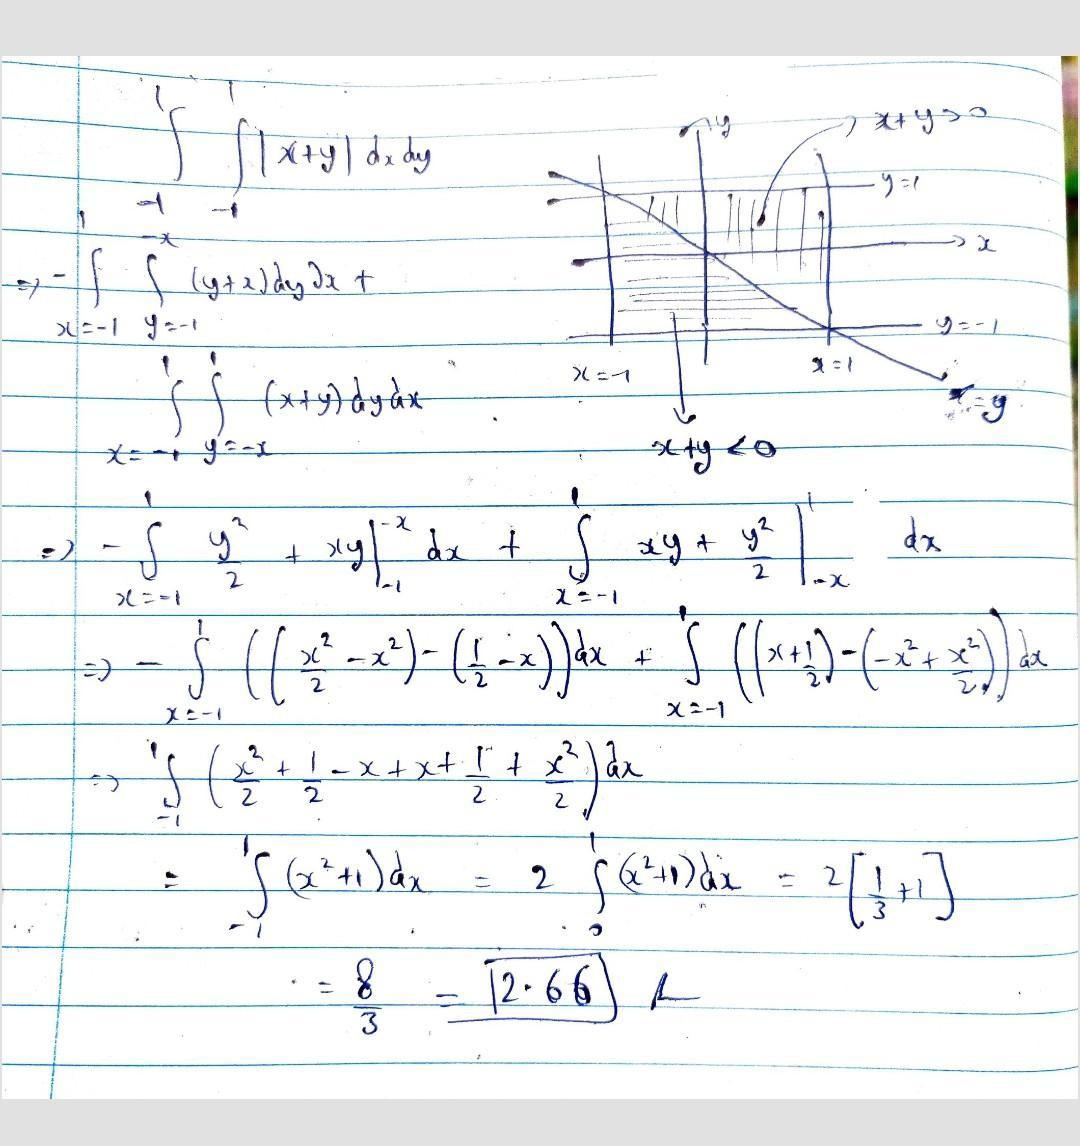 ∫_{-1}^{1} ∫_{-1}^{1} |x+y| dx dy
⇒ - ∫_{x=-1}^{1} ∫_{y=-1}^{-x} (y+x) dy dx +
∫_{x=-1}^{1} ∫_{y=-x}^{1} (x+y) dy dx
y
x+y>0
y=1
x
y=-1
x=-1
x=1
=y
x+y<0
⇒ - ∫_{x=-1}^{1} y²/2 + xy |_{-1}^{-x} dx + ∫_{x=-1}^{1} xy + y²/2 |_{-x}^{1} dx
⇒ - ∫_{x=-1}^{1} ((x²/2 - x²) - (1/2 - x)) dx + ∫_{x=-1}^{1} ((x+1/2) - (-x² + x²/2)) dx
⇒ ∫_{-1}^{1} (x²/2 + 1/2 - x + x + 1/2 + x²/2) dx
= ∫_{-1}^{1} (x²+1) dx = 2 ∫_{0}^{1} (x²+1) dx = 2[1/3 + 1]
= 8/3 = 2.66